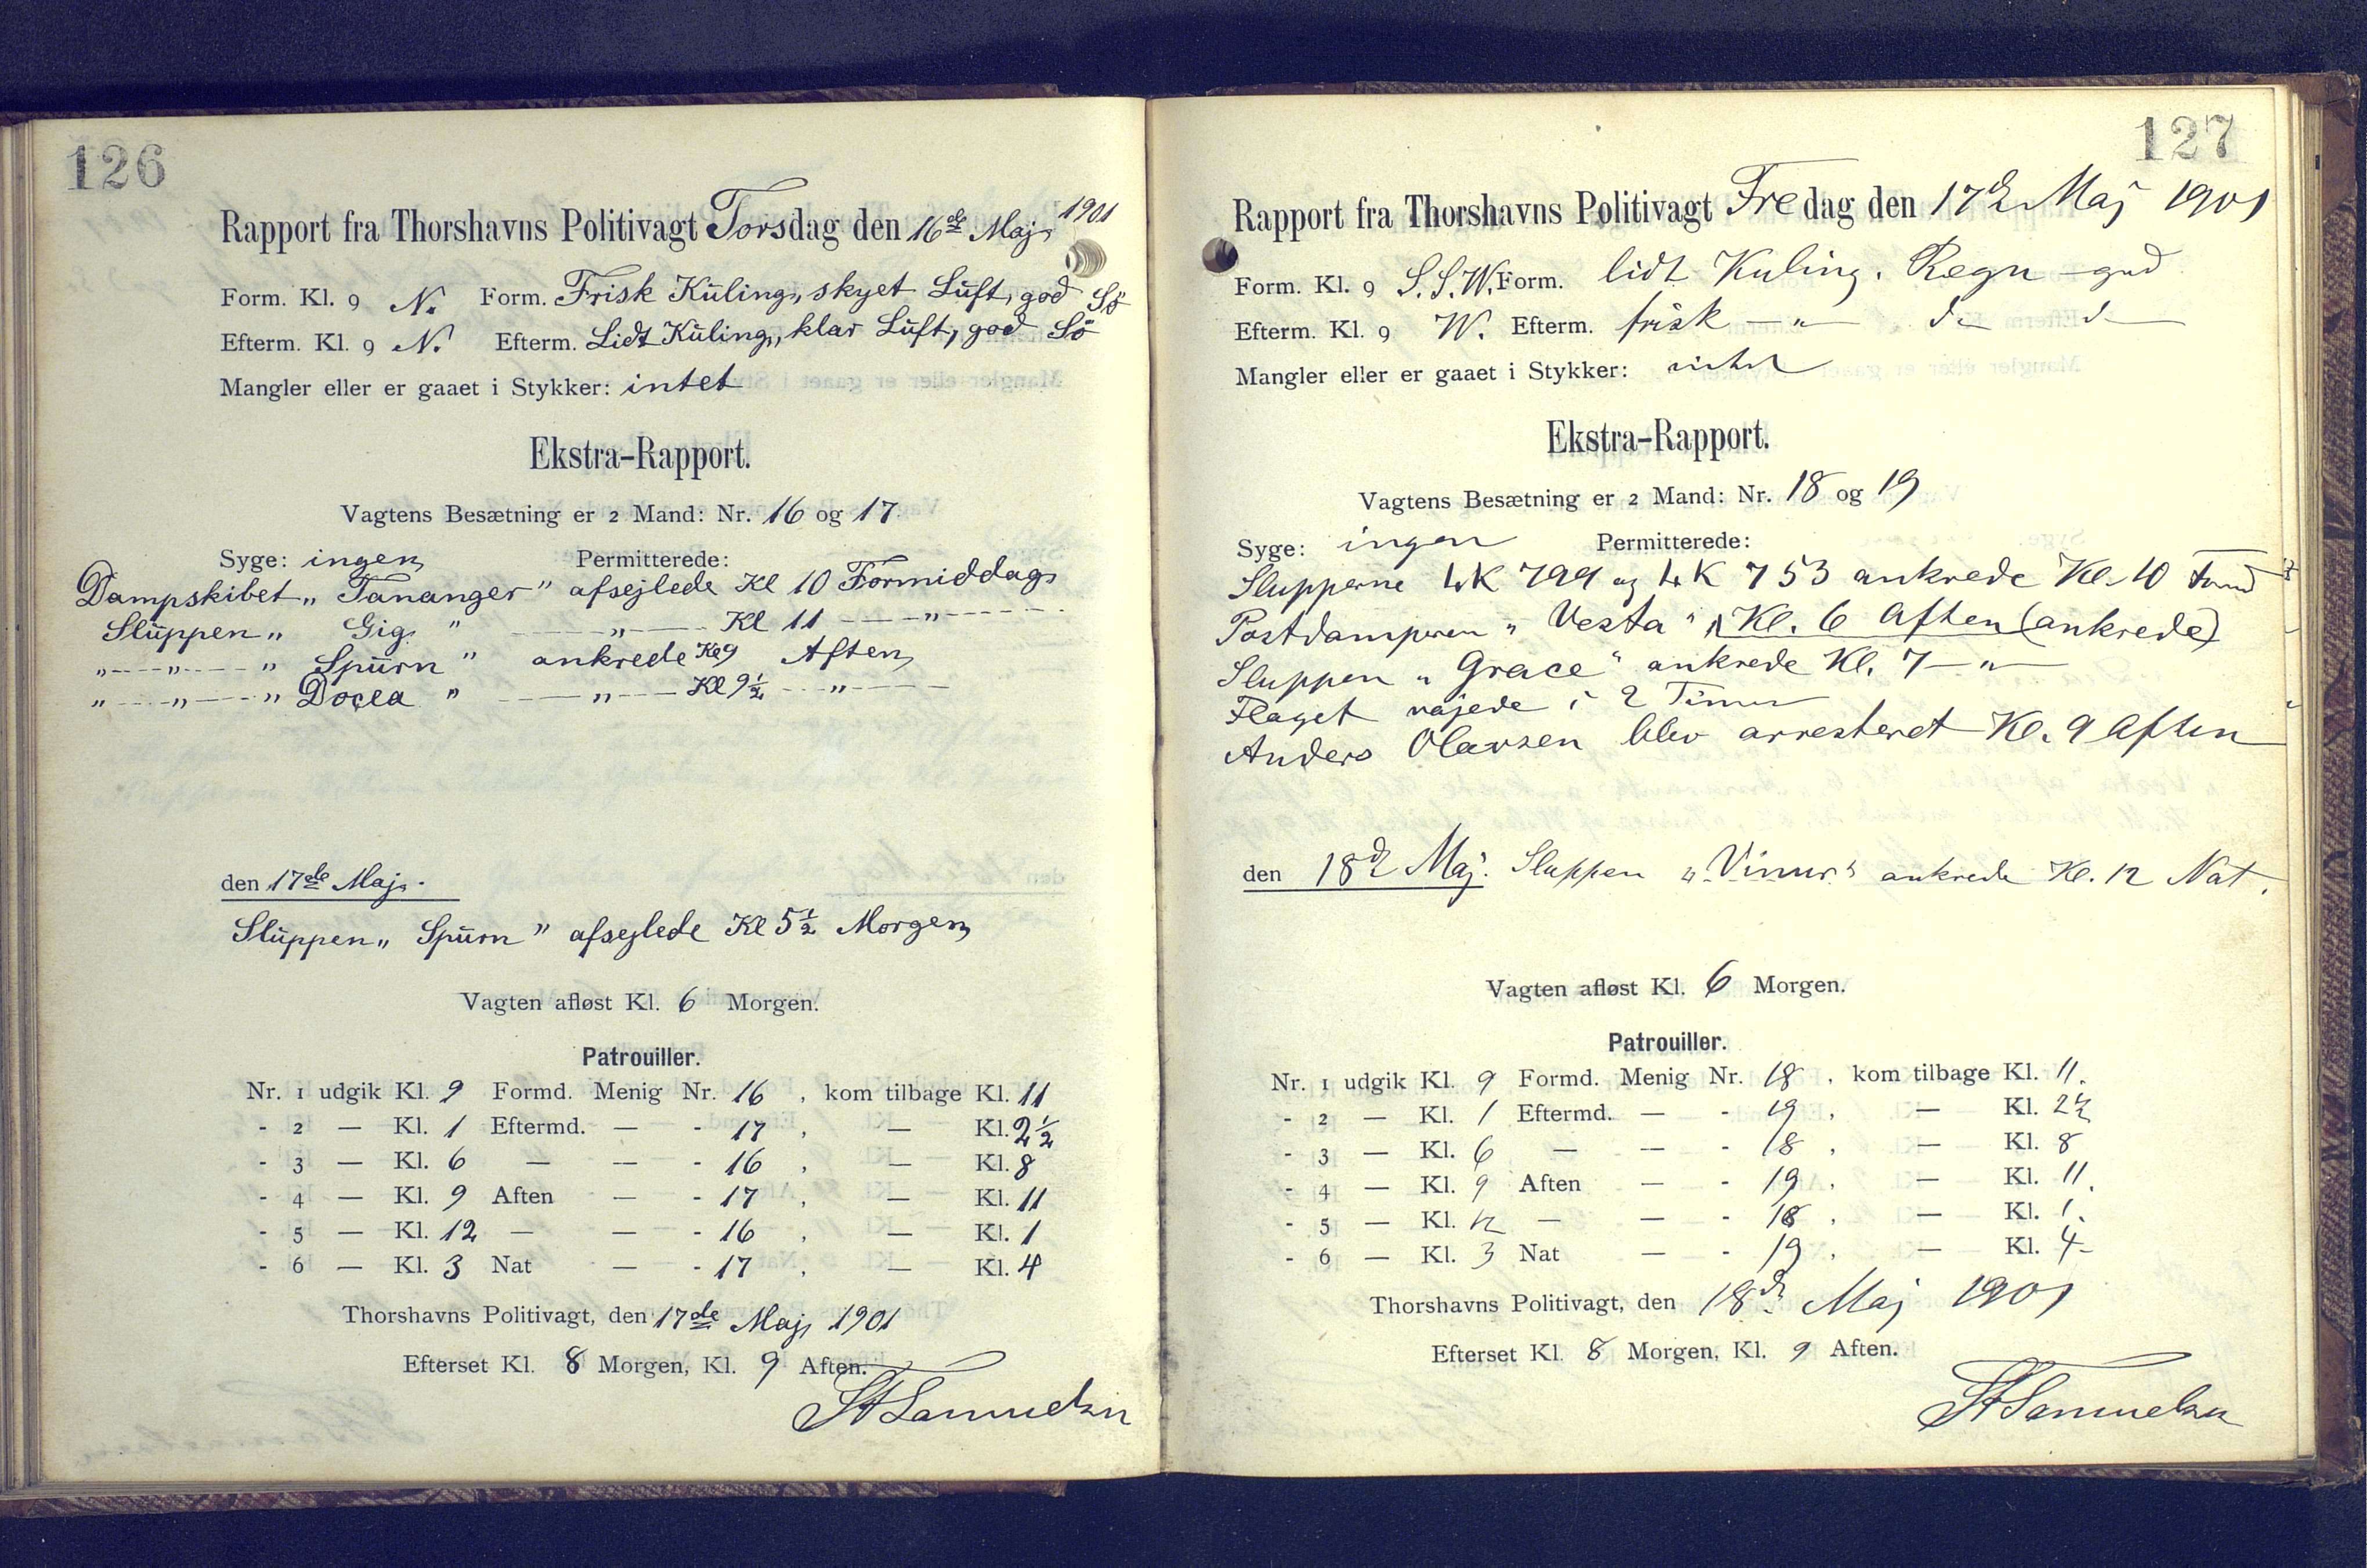 126
Rapport fra Thorshavns Politivagt Torsdag den 16de Maj 1901
Form. Kl. 9 N. Form. Frisk Küling, skyet Lüft, god Sö
Efterm. Kl. 9 N. Efterm. Lidt Küling, klar Lüft, god Sö
Mangler eller er gaaet i Stykker: intet
Ekstra-Rapport.
Vagtens Besætning er 2 Mand: Nr. 16 og 17
Syge: ingen Permitterede:
Dampskibet „ Tananger " afsejlede Kl 10 Formiddag
Slüppen „ Gig " —— „ —— Kl 11 —— „ ——
„ —— „ —— „ Spürn " ankrede Kl 9 Aften
„ —— „ —— „ Docea " —— „ —— Kl 9½ —— „ ——
den 17de Maj.
Slüppen „ Spürn " afsejlede Kl 5½ Morgen
Vagten afløst Kl. 6 Morgen.
Patrouiller.
Nr. 1 udgik Kl. 9 Formd. Menig Nr. 16 , kom tilbage Kl. 11
- 2 — Kl. 1 Eftermd. — - 17 , — Kl. 2½
- 3 — Kl. 6 — — - 16 , — Kl. 8
- 4 — Kl. 9 Aften — - 17 , — Kl. 11
- 5 — Kl. 12 — — - 16 , — Kl. 1
- 6 — Kl. 3 Nat — - 17 , — Kl. 4
Thorshavns Politivagt, den 17de Maj 1901
Efterset Kl. 8 Morgen, Kl. 9 Aften.
Samuelsen
127
Rapport fra Thorshavns Politivagt Fredag den 17d Maj 1901
Form. Kl. 9 S.S.W. Form. lidt Kuling. Regn - god
Efterm. Kl. 9 W. Efterm. frisk — „ — do do
Mangler eller er gaaet i Stykker: intet
Ekstra-Rapport.
Vagtens Besætning er 2 Mand: Nr. 18 og 19
Syge: ingen Permitterede:
Slupperne LK 799 og LK 753 ankrede Kl. 10
Postdamperen „ Vesta " Kl. 6 Aften (ankrede)
Sluppen „ Grace " ankrede Kl. 7 — „ —
Flaget vajede i 2 Timer
Anders Olavsen blev arresteret Kl. 9 Aften
den 18d Maj. Sluppen „ Vinur " ankrede Kl. 12 Nat.
Vagten afløst Kl. 6 Morgen.
Patrouiller.
Nr. 1 udgik Kl. 9 Formd. Menig Nr. 18 , kom tilbage Kl. 11.
- 2 — Kl. 1 Eftermd. — - 19 , — Kl. 2½
- 3 — Kl. 6 — — - 18 , — Kl. 8
- 4 — Kl. 9 Aften — - 19 , — Kl. 11.
- 5 — Kl. 12 — — - 18 , — Kl. 1.
- 6 — Kl. 3 Nat — - 19 , — Kl. 4
Thorshavns Politivagt, den 18d Maj 1901
Efterset Kl. 8 Morgen, Kl. 9 Aften.
Samuelsen